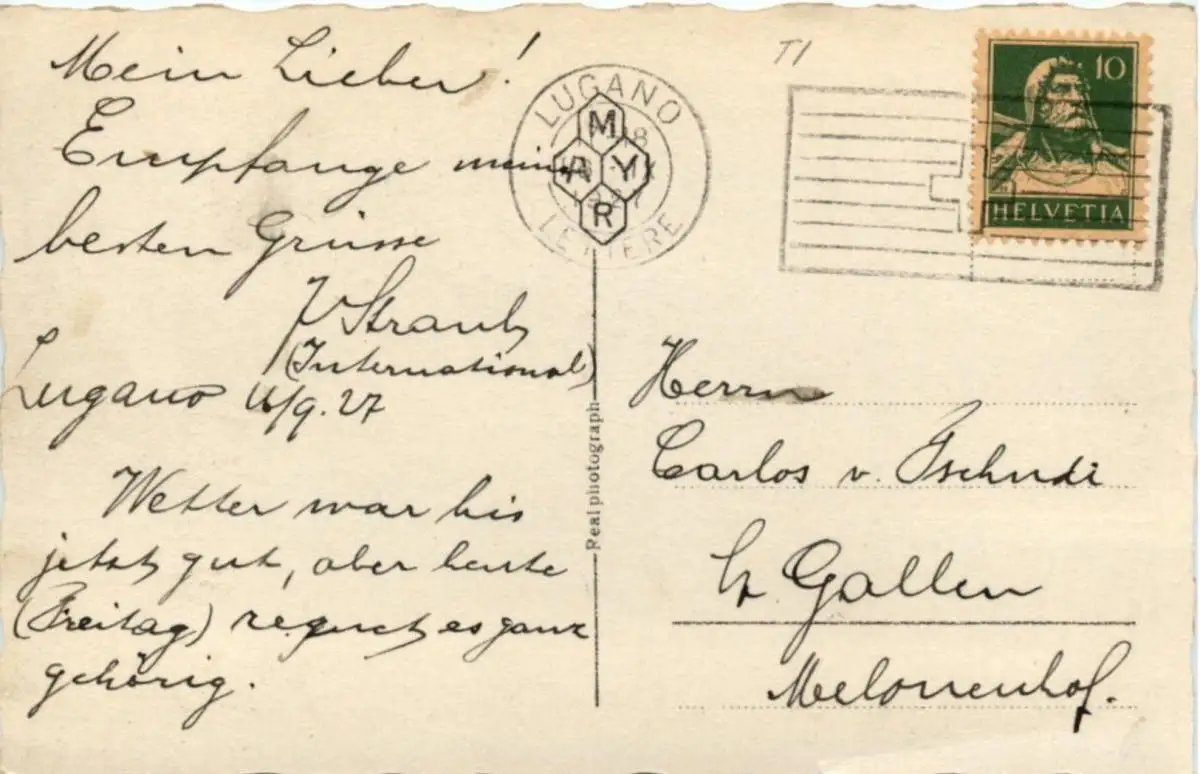 Mein Lieber!
Empfange meine
besten Grüsse
J Straub
(International)
Lugano 16/9.27
Wetter war bis
jetzt gut, aber heute
(Freitag) regnet es ganz
gehörig.
T1
LUGANO
LETTERE
M
A Y
R
10
HELVETIA
Real photograph
Herrn
Carlos v. Tschudi
St Gallen
Melonenhof.